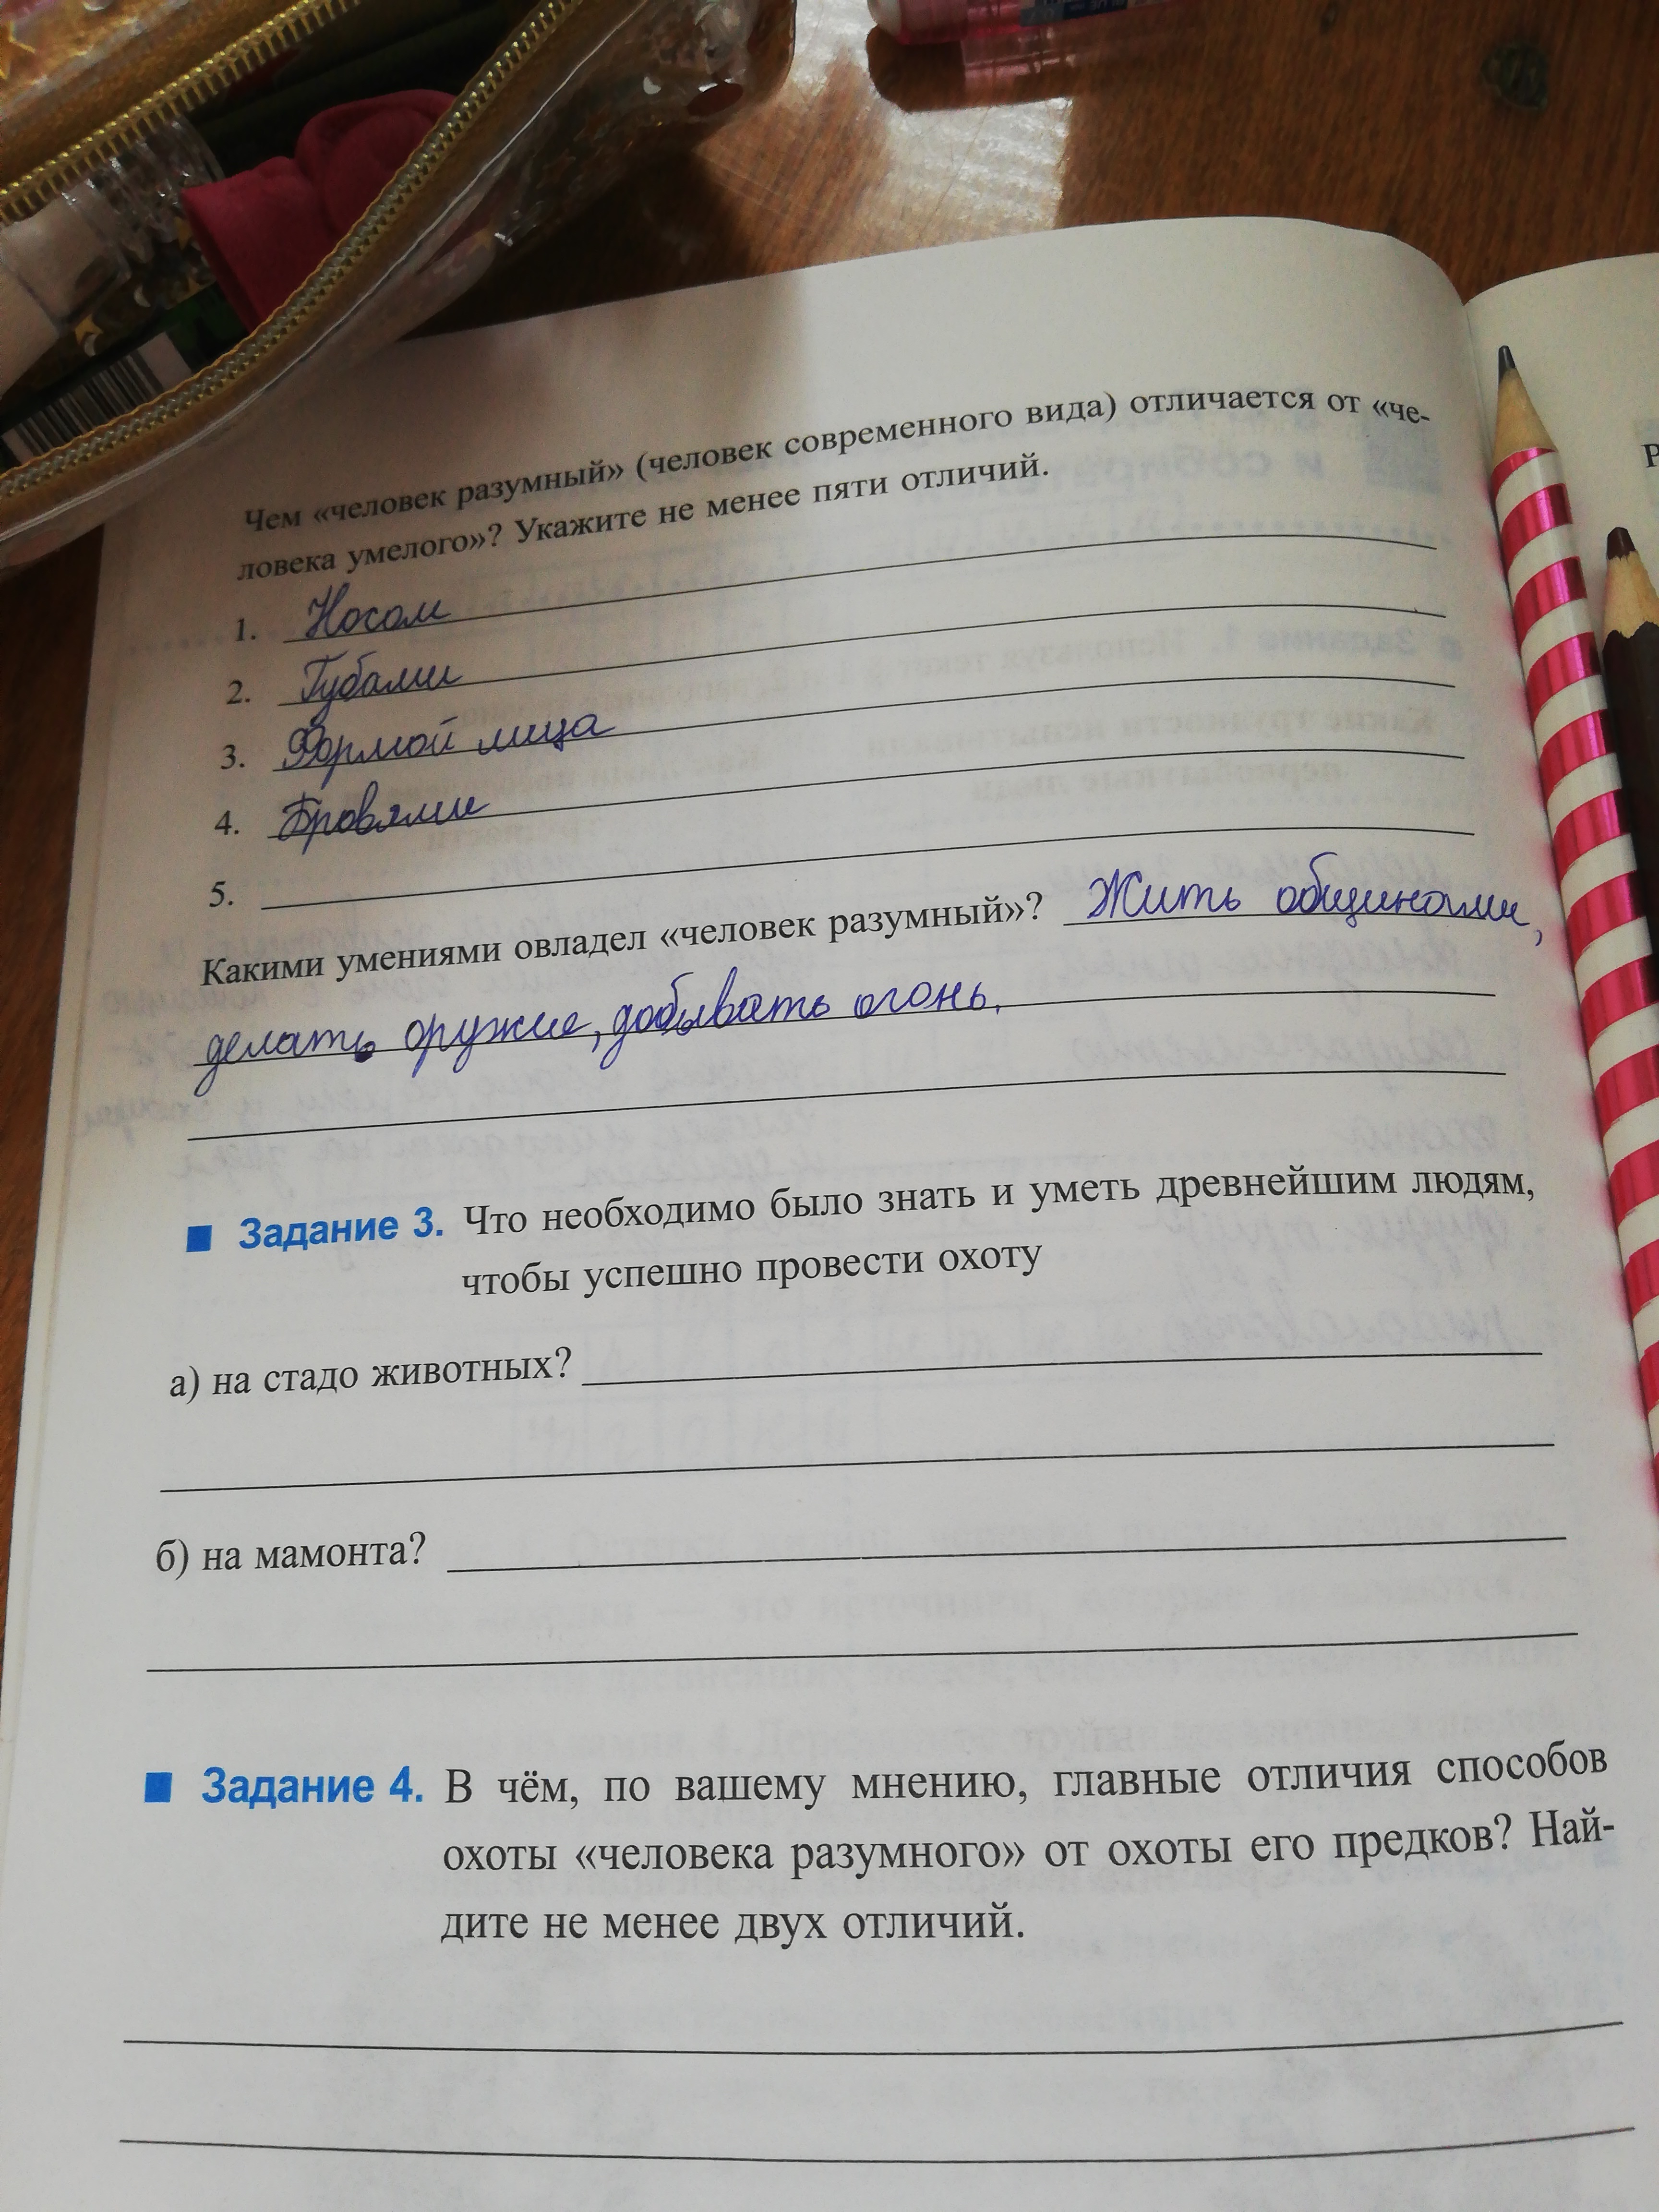 Чем «человек разумный» (человек современного вида) отличается от «че-
ловека умелого»? Укажите не менее пяти отличий.
1. Носом
2. Губами
3. Формой лица
4. Бровями
5.
Какими умениями овладел «человек разумный»? Жить общинами,
делать оружие, добывать огонь.
Задание 3. Что необходимо было знать и уметь древнейшим людям,
чтобы успешно провести охоту
а) на стадо животных?
б) на мамонта?
Задание 4. В чём, по вашему мнению, главные отличия способов
охоты «человека разумного» от охоты его предков? Най-
дите не менее двух отличий.